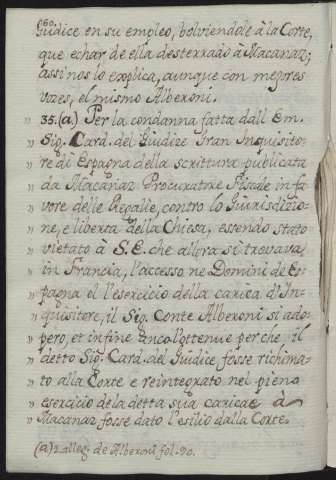 60.
Giudice en su empleo, bolviendole à la Corte,
que echar de ella desterrado à Macanaz;
assi nos lo explica, aunque con mejores
voces, el mismo Alberoni.
" 35.(a.) Per la condanna fatta dàll Em.
" Sig. Card. del Giudize Gran Inquisito-
" re di Espagna della scrittura publicata
" da Macanaz Procuratore Fiscale in fa-
" vore delle Regalie, contro lo Giurisdizio-
" ne, e libertà della Chiesa, essendo stato
" vietato à S. E. che allora si trovava
" in Francia, l'accesso ne Domini de Es-
" pagna el l'esercicio della carica d'In-
" quisitore, il Sig. Conte Alberoni si ado-
" però, et infine anco l'ottenue perche, il
" detto Sig. Card. del Giudice fosse richima-
" to alla Corte e reintegrato nel pieno
" esercicio de la detta sua caricae à
" Macanaz fosse dato l'esilio dalla Corte.
(a) 2. alleg. de Alberoni fol. 90.